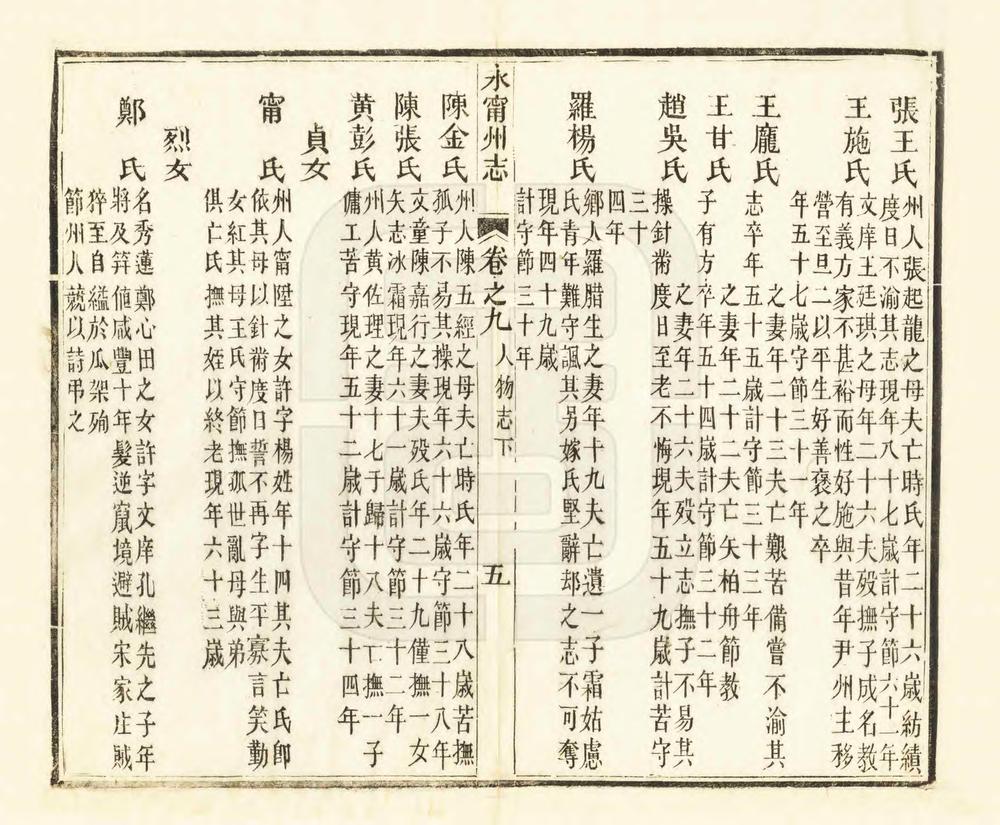 張王氏
州人張起龍之母夫亡時氏年二十六歲紡績
度日不渝其志現年八十七歲計守節六十一年
王施氏
文庠王廷琪之母年二十六夫殁撫子成名教
有義方家不甚裕而性好施與昔年尹州主移
營至旦二以平生好善褒之卒
年五十七歲守節三十一年
王龐氏
之妻年二十三夫亡艱苦備嘗不渝其
志卒年五十五歲計守節三十三年
王甘氏
之妻年二十二夫亡矢柏舟節教
子有方卒年五十四歲計守節三十二年
趙吳氏
之妻年二十六夫殁立志撫子不易其
操針術度日至老不悔現年五十九歲計苦守
三十
四年
羅楊氏
鄉人羅腊生之妻年十九夫亡遺一子霜姑慮
氏青年難守諷其另嫁氏堅辭却之志不可奪
現年四十九歲
計守節三十年
永甯州志
卷之九
人物志下
五
陳金氏
州人陳五經之母夫亡時氏年二十八歲苦撫
孤子不易其操現年六十六歲守節三十八年
陳張氏
文童陳嘉行之妻夫殁氏年二十九僅撫一女
矢志冰霜現年六十一歲計守節三十二年
黄彭氏
州人黄佐理之妻十七于歸十八夫亡撫一子
傭工苦守現年五十二歲計守節三十四年
貞女
甯氏
州人甯陞之女許字楊姓年十四其夫亡氏卽
依其母以針術度日誓不再字生平寡言笑勤
女紅其母王氏守節撫孤世亂母與弟
俱亡氏撫其姪以終老現年六十三歲
烈女
鄭氏
名秀蓮鄭心田之女許字文庠孔繼先之子年
將及笄値咸豐十年髮逆竄境避賊宋家庄賊
猝至自縊於瓜架殉
節州人競以詩弔之